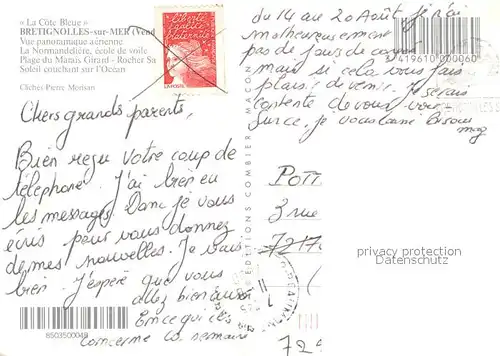 « La Côte Bleue »
BRETIGNOLLES-sur-MER (Vend
Vue panoramique aérienne
La Normandelière, école de voile
Plage du Marais Girard - Rocher Sa
Soleil couchant sur l'Océan
Clichés Pierre Morisan
liberté égalité fraternité
LA POSTE
Chers grands parents,
Bien reçu votre coup de
téléphone. J'ai bien eu
les messages. Donc je vous
écris pour vous donnez
de mes nouvelles. Je vais
bien. J'espère que vous
allez bien aussi
En ce qui
concerne la semaine
8503500049
du 14 au 20 Août, je n'ai
malheureusement
pas de jours de
mais si cela vous fais
plaisir de venir. Je serais
contente de vous voir.
Sur ce, je vous laisse Bisous
3 419610 000060
MACON
POTT
3 rue
7217
privacy protection
Datenschutz
72